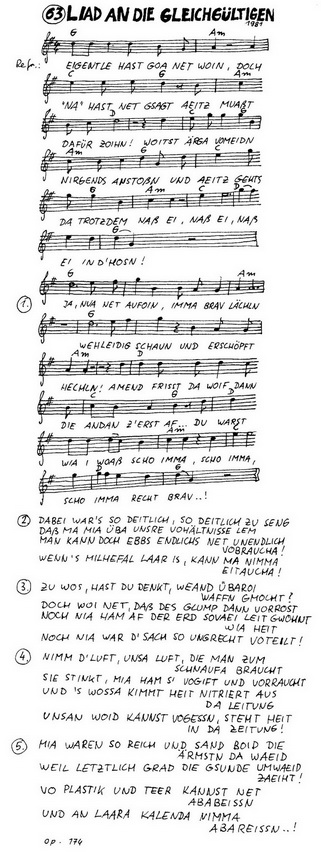 63 LIAD AN DIE GLEICHGÜLTIGEN
1981
G Am
Refr.: EIGENTLE HAST GOA NET WOIN, DOCH
C G Am
"NA" HAST NET GSAGT AEITZ MUAßT
D G
DAFÜR ZOIHN! WOITST ÄRGA VOMEIDN
Am G C
NIRGENDS ANSTOßN UND AEITZ GEHTS
G Am C D
DA TROTZDEM NAß EI, NAß EI, NAß
G
EI IN D'HOSN!
G Am
1 JA, NUA NET AUFOIN, IMMA BRAV LÄCHLN
C G
WEHLEIDIG SCHAUN UND ERSCHÖPFT
Am D
HECHLN! AMEND FRISST DA WOIF DANN
C G
DIE ANDAN Z'ERST AF... DU WARST
Am C
WIA I WOAß SCHO IMMA, SCHO IMMA,
D G
SCHO IMMA RECHT BRAV..!
2 DABEI WAR'S SO DEITLICH, SO DEITLICH ZU SENG
DAß MA MIA ÜBA UNSRE VOHÄLTNISSE LEM
MAN KANN DOCH EBBS ENDLICHS NET UNENDLICH
VOBRAUCHA!
WENN'S MILHEFAL LAAR IS, KANN MA NIMMA
EITAUCHA!
3 ZU WOS, HAST DU DENKT, WEAND ÜBAROI
WAFFN GMOCHT?
DOCH WOI NET, DAß DES GLUMP DANN VORROST
NOCH NIA HAM AF DER ERD SOVAEI LEIT GWOHNT
WIA HEIT
NOCH NIA WAR D'SACH SO UNGRECHT VOTEILT!
4 NIMM D'LUFT, UNSA LUFT, DIE MAN ZUM
SCHNAUFA BRAUCHT
SIE STINKT, MIA HAM S' VOGIFT UND VORRAUCHT
UND 'S WOSSA KIMMT HEIT NITRIERT AUS
DA LEITUNG
UNSAN WOID KANNST VOGESSN, STEHT HEIT
IN DA ZEITUNG!
5 MIA WAREN SO REICH UND SAND BOID DIE
ÄRMSTN DA WAEID
WEIL LETZTLICH GRAD DIE GSUNDE UMWAEID
ZAEIHT!
VO PLASTIK UND TEER KANNST NET
ABABEISSN
UND AN LAARA KALENDA NIMMA
ABAREISSN..!
op. 174